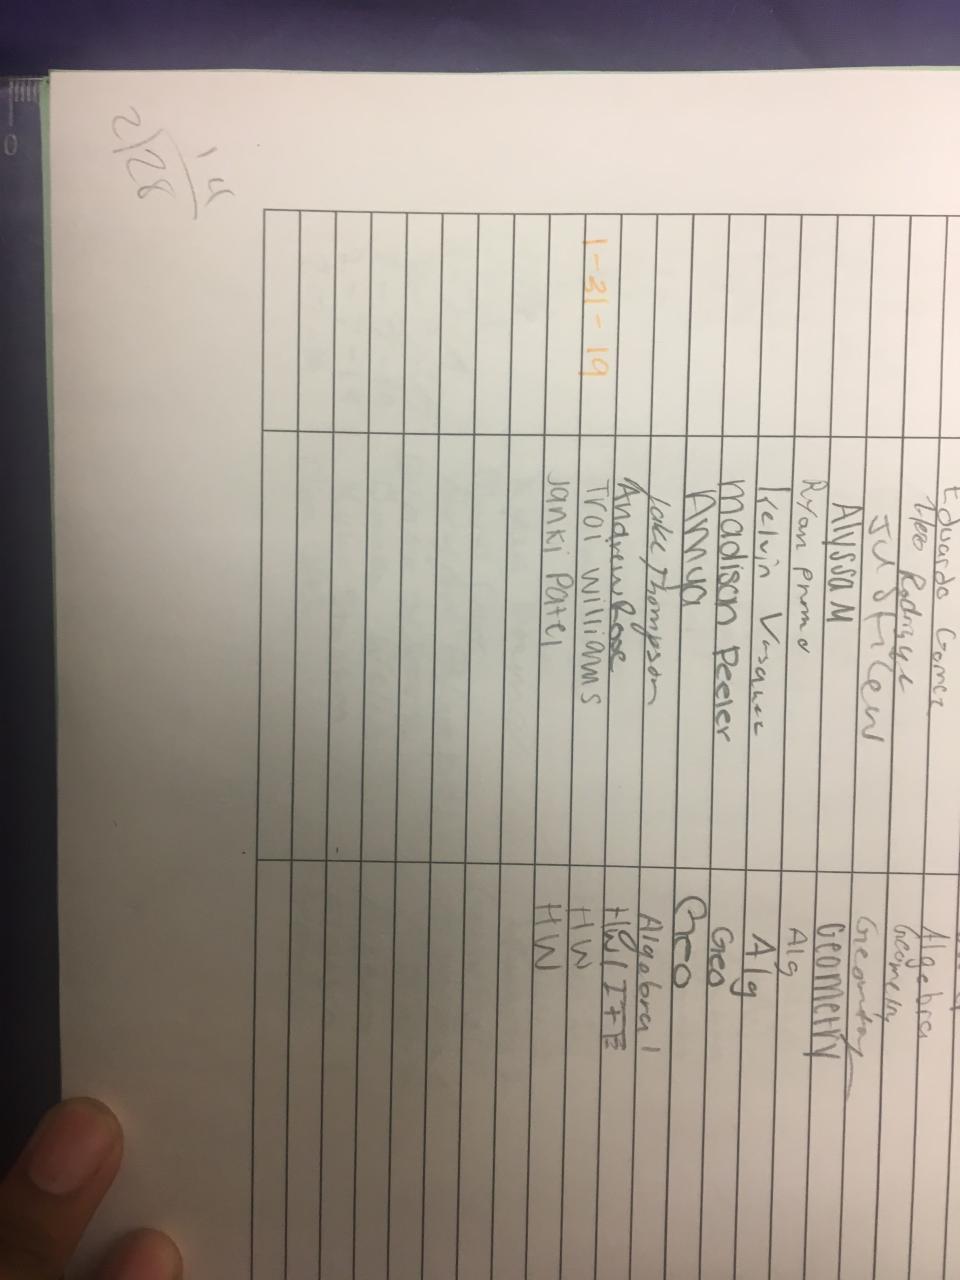 Eduardo Gomez Algebra
Rodrigue Geometry
Geometry
Alyssa M Geometry
Ryan Alg
Kelvin Vasquez Alg
Madison Peeler Geo
Amya Geo
Jake Thompson Algebra 1
Andrew Rose HW/I+E
1-31-19 Troi Williams HW
Janki Patel HW
14
2/28
0